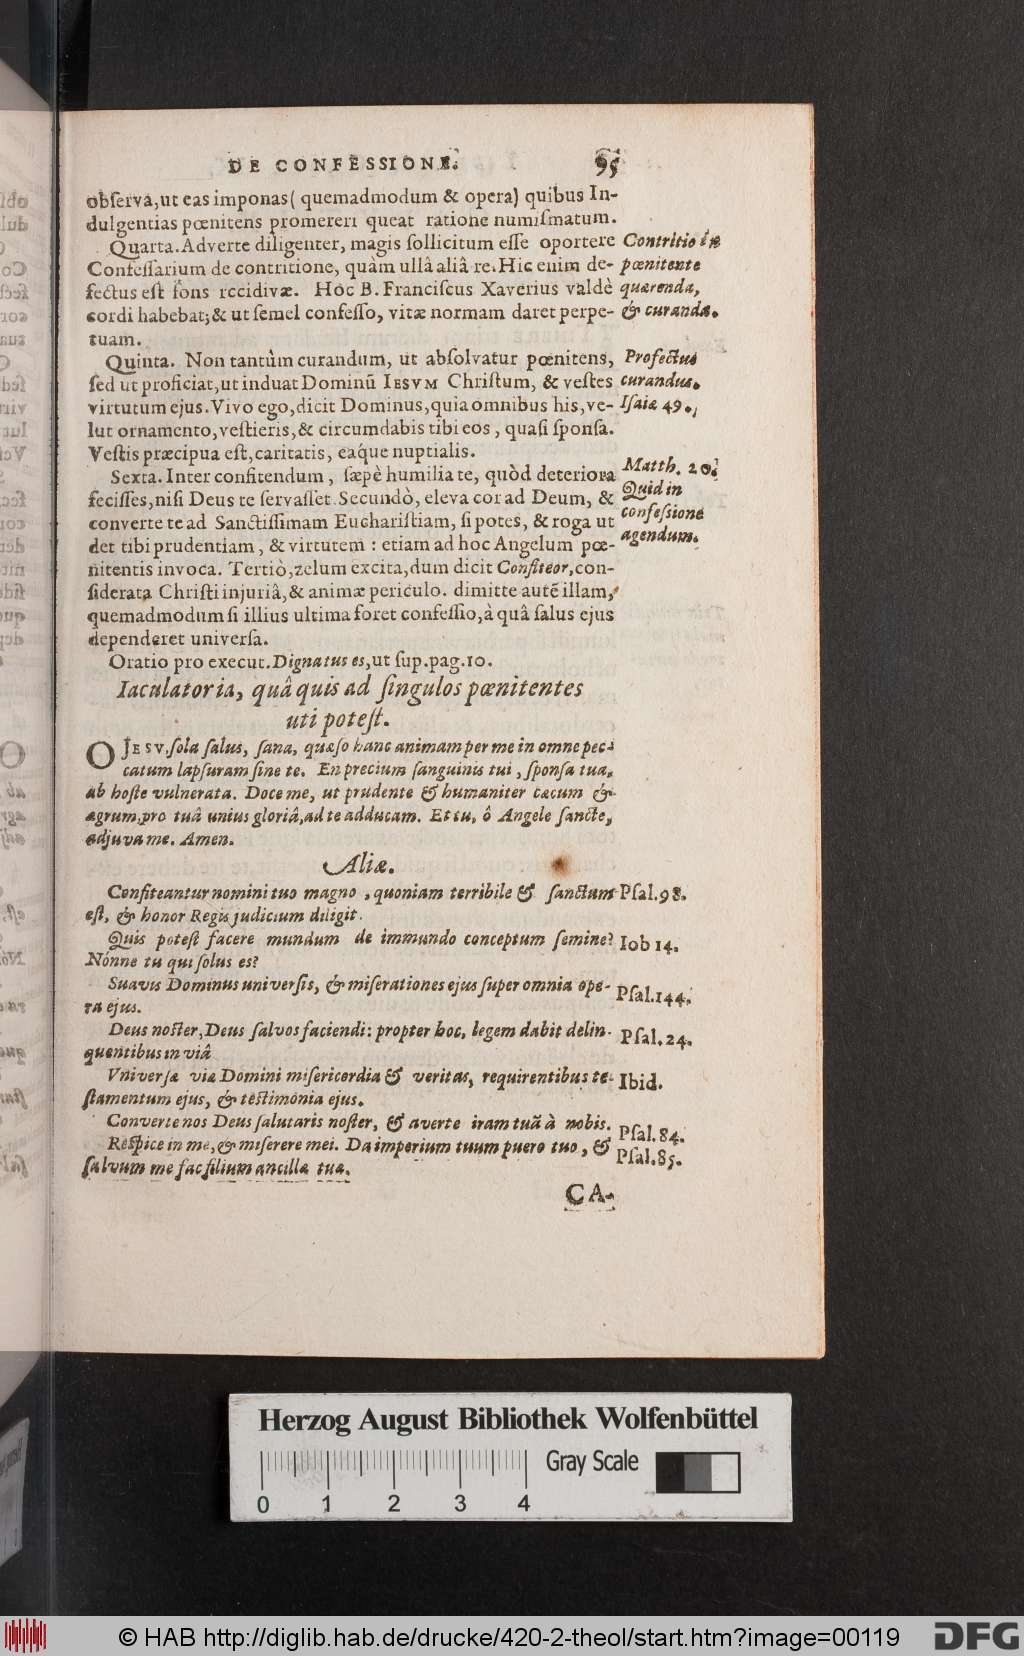 DE CONFESSIONE. 95
obſerva,ut eas imponas( quemadmodum & opera) quibus In-
dulgentias pœnitens promereri queat ratione numiſmatum.
Quarta. Adverte diligenter, magis ſollicitum eſſe oportere
Confeſſarium de contritione, quàm ullâ aliâ re. Hic enim de-
fectus eſt fons recidivæ. Hoc B. Franciſcus Xaverius valdè
cordi habebat; & ut ſemel confeſſo, vitæ normam daret perpe-
tuam.
Contritio in
pœnitente
quærenda,
& curanda.
Quinta. Non tantùm curandum, ut abſolvatur pœnitens,
ſed ut proficiat, ut induat Dominũ IESVM Chriſtum, & veſtes
virtutum ejus. Vivo ego, dicit Dominus, quia omnibus his, ve-
lut ornamento, veſtieris, & circumdabis tibi eos, quaſi ſponſa.
Veſtis præcipua eſt, caritatis, eaq́ue nuptialis.
Profectus
curandus.
Iſaiæ 49.
Sexta. Inter confitendum, ſæpè humilia te, quòd deteriora
feciſſes, niſi Deus te ſervaſſet. Secundò, eleva cor ad Deum, &
converte te ad Sanctiſſimam Euchariſtiam, ſi potes, & roga ut
det tibi prudentiam, & virtutem : etiam ad hoc Angelum pœ-
nitentis invoca. Tertiò, zelum excita, dum dicit Confiteor, con-
ſiderata Chriſti injuriâ, & animæ periculo. dimitte autẽ illam,
quemadmodum ſi illius ultima foret confeſſio, à quâ ſalus ejus
dependeret univerſa.
Matth. 20.
Quid in
confeſsione
agendum.
Oratio pro execut. Dignatus es, ut ſup. pag. 10.
Iaculatoria, quâ quis ad ſingulos pœnitentes
uti poteſt.
O JESV, ſola ſalus, ſana, quæſo hanc animam per me in omne pec-
catum lapſuram ſine te. En precium ſanguinis tui, ſponſa tua,
ab hoſte vulnerata. Doce me, ut prudente & humaniter cæcum &
ægrum, pro tuâ unius gloriâ, ad te adducam. Et tu, ô Angele ſancte,
adjuva me. Amen.
Aliæ.
Confiteantur nomini tuo magno, quoniam terribile & ſanctum
eſt, & honor Regis judicium diligit.
Pſal. 98.
Quis poteſt facere mundum de immundo conceptum ſemine?
Nónne tu qui ſolus es?
Iob 14.
Suavis Dominus univerſis, & miſerationes ejus ſuper omnia ope-
ra ejus.
Pſal. 144.
Deus noſter, Deus ſalvos faciendi: propter hoc, legem dabit delin-
quentibus in viâ
Pſal. 24.
Vniverſæ viæ Domini miſericordia & veritas, requirentibus te-
ſtamentum ejus, & teſtimonia ejus.
Ibid.
Converte nos Deus ſalutaris noſter, & averte iram tuã à nobis.
Pſal. 84.
Reſpice in me, & miſerere mei. Da imperium tuum puero tuo, &
ſalvum me fac filium ancillæ tuæ.
Pſal. 85.
CA-
Herzog August Bibliothek Wolfenbüttel
0 1 2 3 4
Gray Scale
© HAB http://diglib.hab.de/drucke/420-2-theol/start.htm?image=00119
DFG